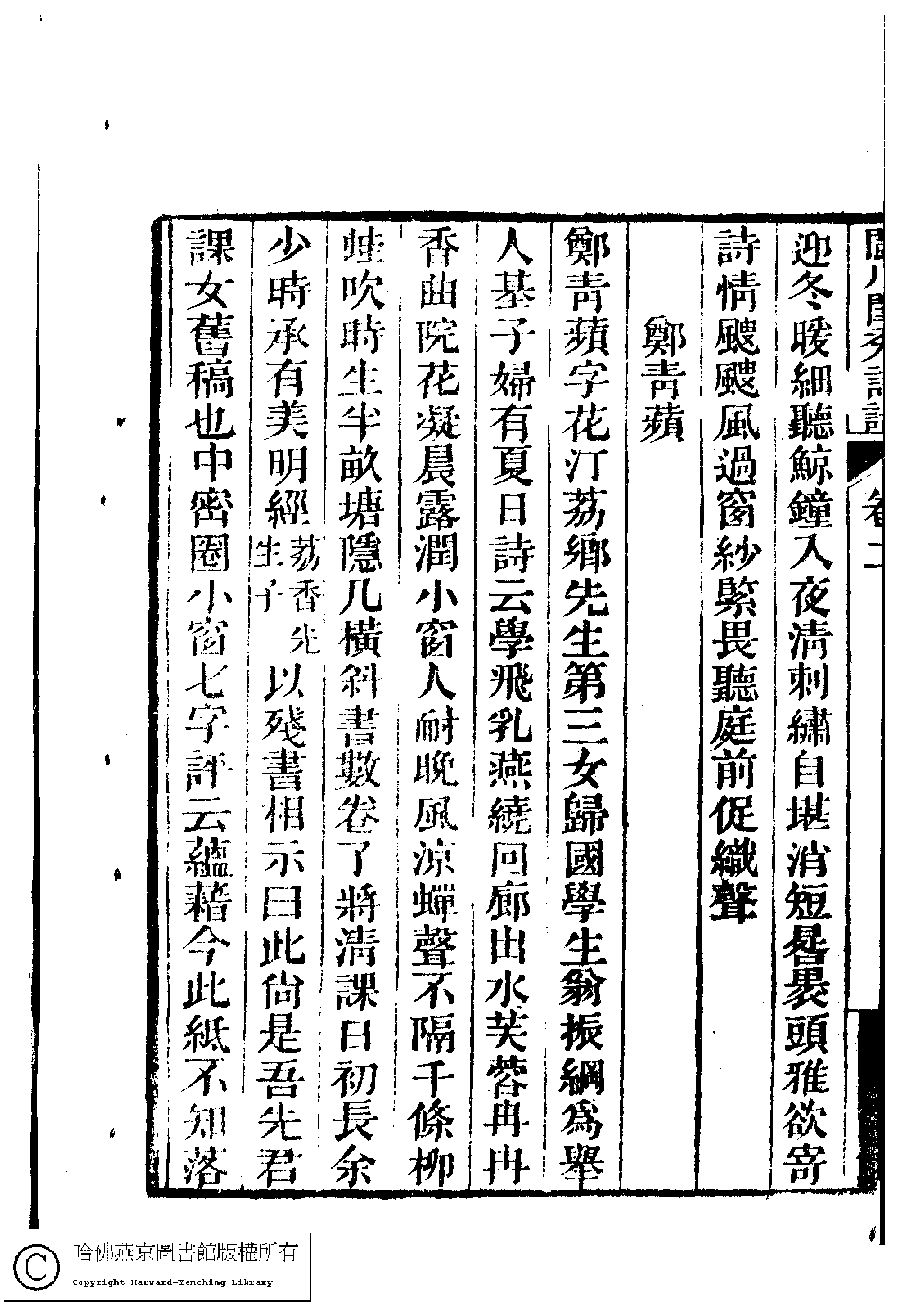 閩川閨秀詩話 卷二
迎冬暖細聽鯨鐘入夜淸刺繡自堪消短晷褁頭雅欲寄
詩情颼颼風過窗紗緊畏聽庭前促織聲
鄭靑蘋
鄭靑蘋字花汀荔鄉先生第三女歸國學生翁振綱爲舉
人基子婦有夏日詩云學飛乳燕繞回廊出水芙蓉冉冉
香曲院花凝晨露潤小窗人耐晚風涼蟬聲不隔千條柳
蛙吹時生半畝塘隱几橫斜書數卷了將淸課日初長余
少時承有美明經荔香先生子以殘書相示曰此尙是吾先君
課女舊稿也中密圈小窗七字評云蘊藉今此紙不知落
哈佛燕京圖書館版權所有
Copyright Harvard-Yenching Library